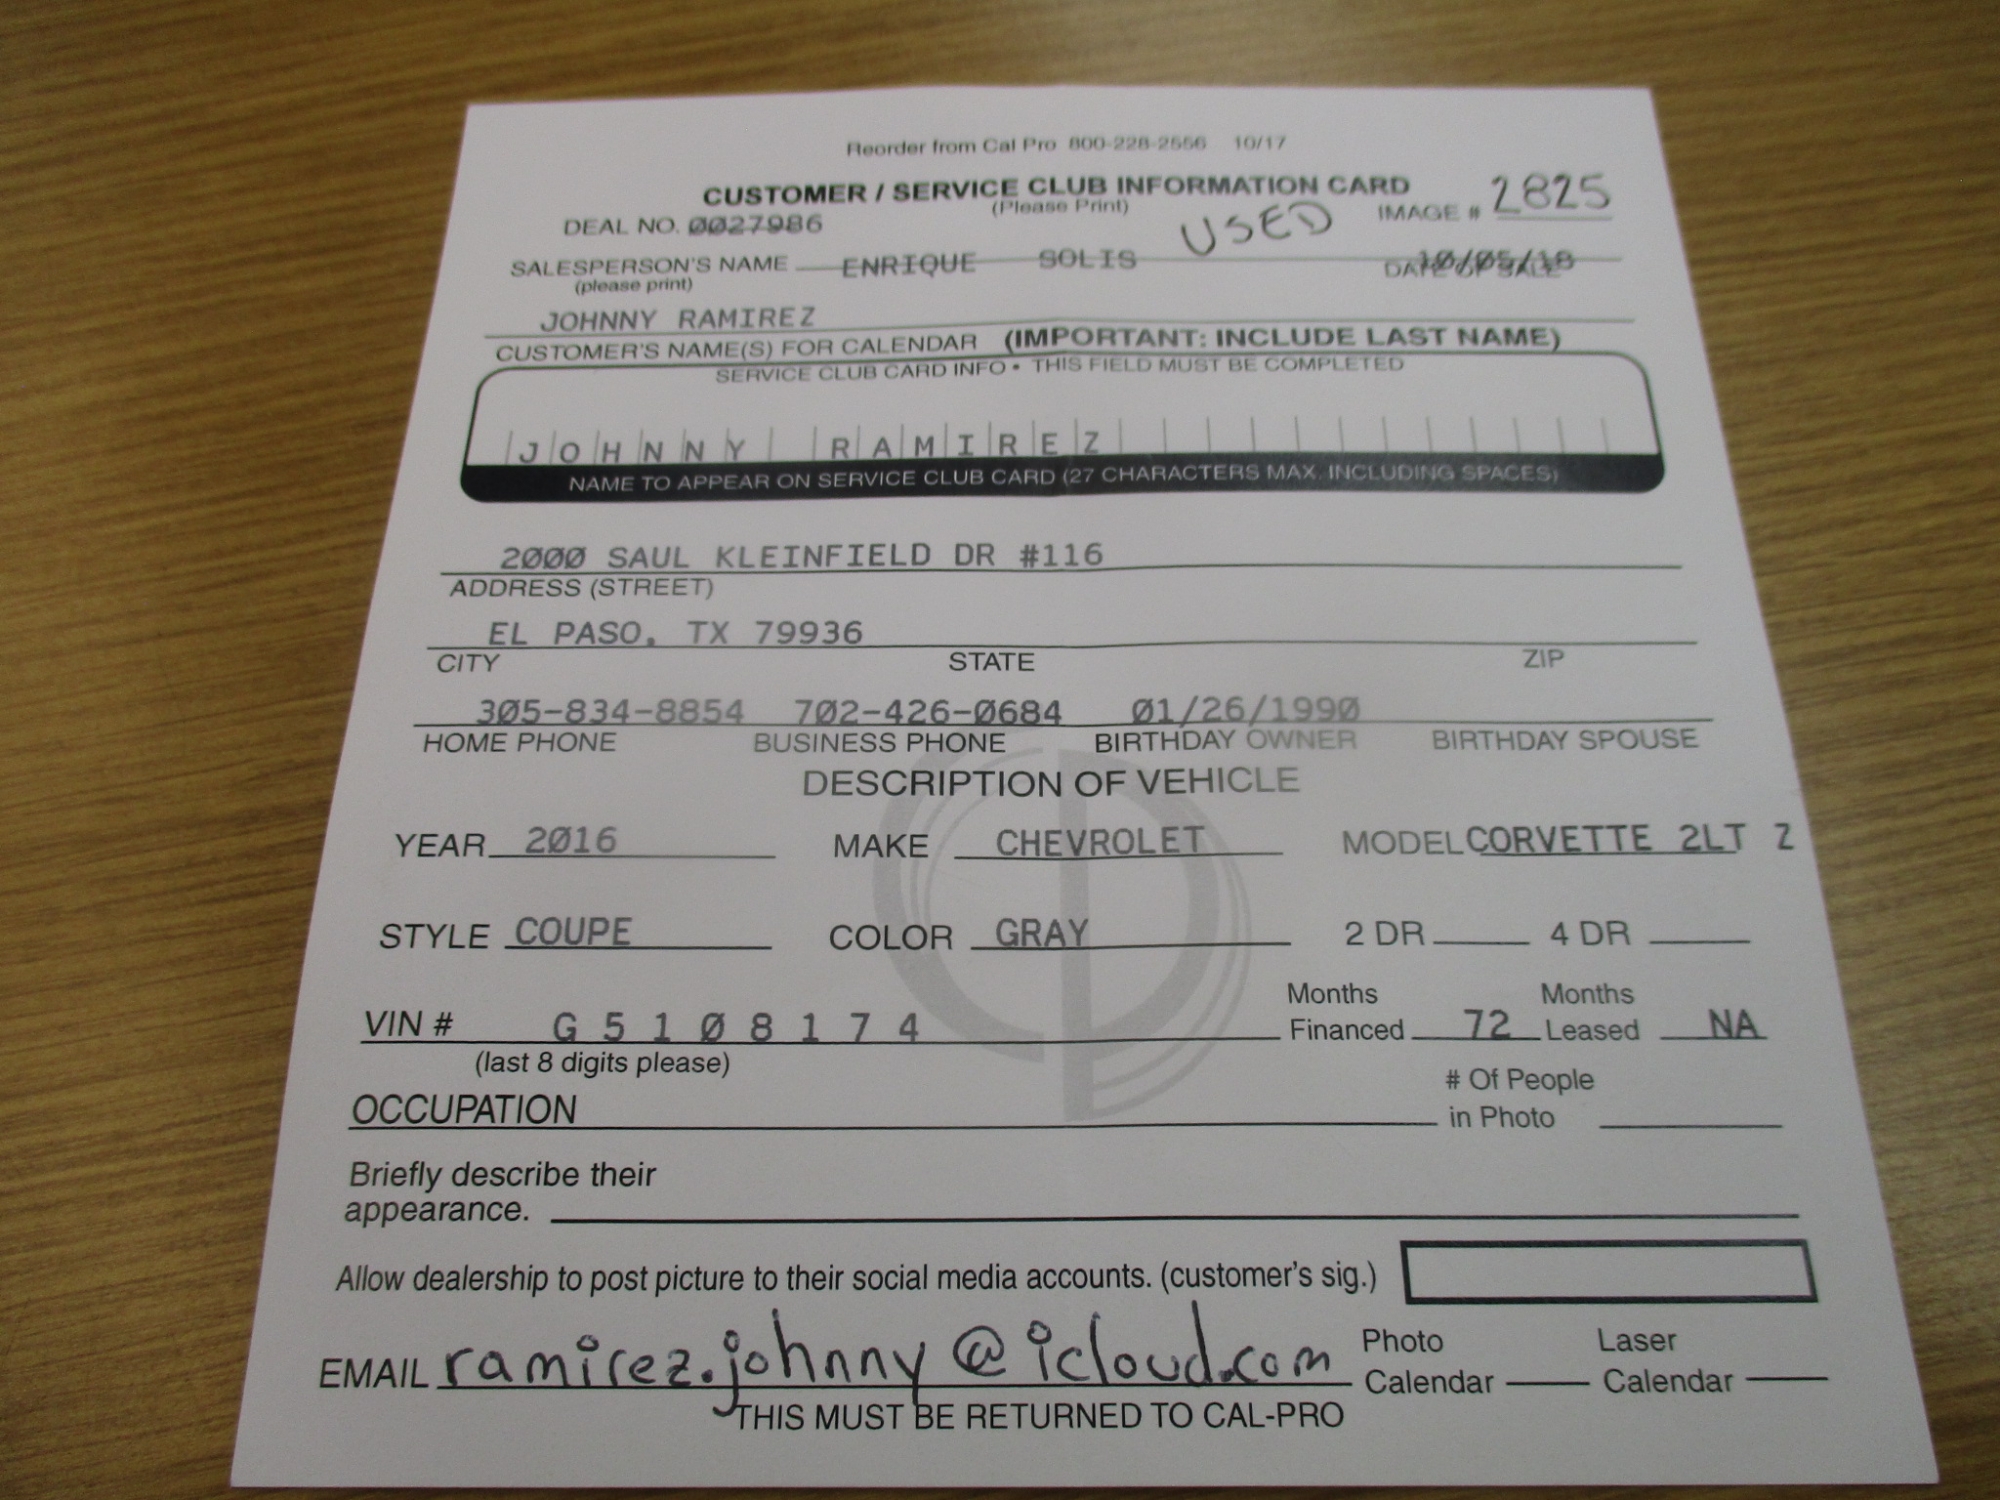 Reorder from Cal Pro 800-228-2556 10/17
CUSTOMER / SERVICE CLUB INFORMATION CARD
(Please Print)
DEAL NO. 0027986 USED IMAGE # 2825
SALESPERSON'S NAME ENRIQUE SOLIS DATE OF SALE 10/05/18
(please print)
JOHNNY RAMIREZ
CUSTOMER'S NAME(S) FOR CALENDAR (IMPORTANT: INCLUDE LAST NAME)
SERVICE CLUB CARD INFO • THIS FIELD MUST BE COMPLETED
JOHNNY RAMIREZ
NAME TO APPEAR ON SERVICE CLUB CARD (27 CHARACTERS MAX. INCLUDING SPACES)
2000 SAUL KLEINFIELD DR #116
ADDRESS (STREET)
EL PASO, TX 79936
CITY STATE ZIP
305-834-8854 702-426-0684 01/26/1990
HOME PHONE BUSINESS PHONE BIRTHDAY OWNER BIRTHDAY SPOUSE
DESCRIPTION OF VEHICLE
YEAR 2016 MAKE CHEVROLET MODEL CORVETTE 2LT Z
STYLE COUPE COLOR GRAY 2 DR 4 DR
VIN # G5108174 Months Financed 72 Months Leased NA
(last 8 digits please)
OCCUPATION # Of People in Photo
Briefly describe their
appearance.
Allow dealership to post picture to their social media accounts. (customer's sig.)
EMAIL ramirez.johnny@icloud.com Photo Calendar Laser Calendar
THIS MUST BE RETURNED TO CAL-PRO